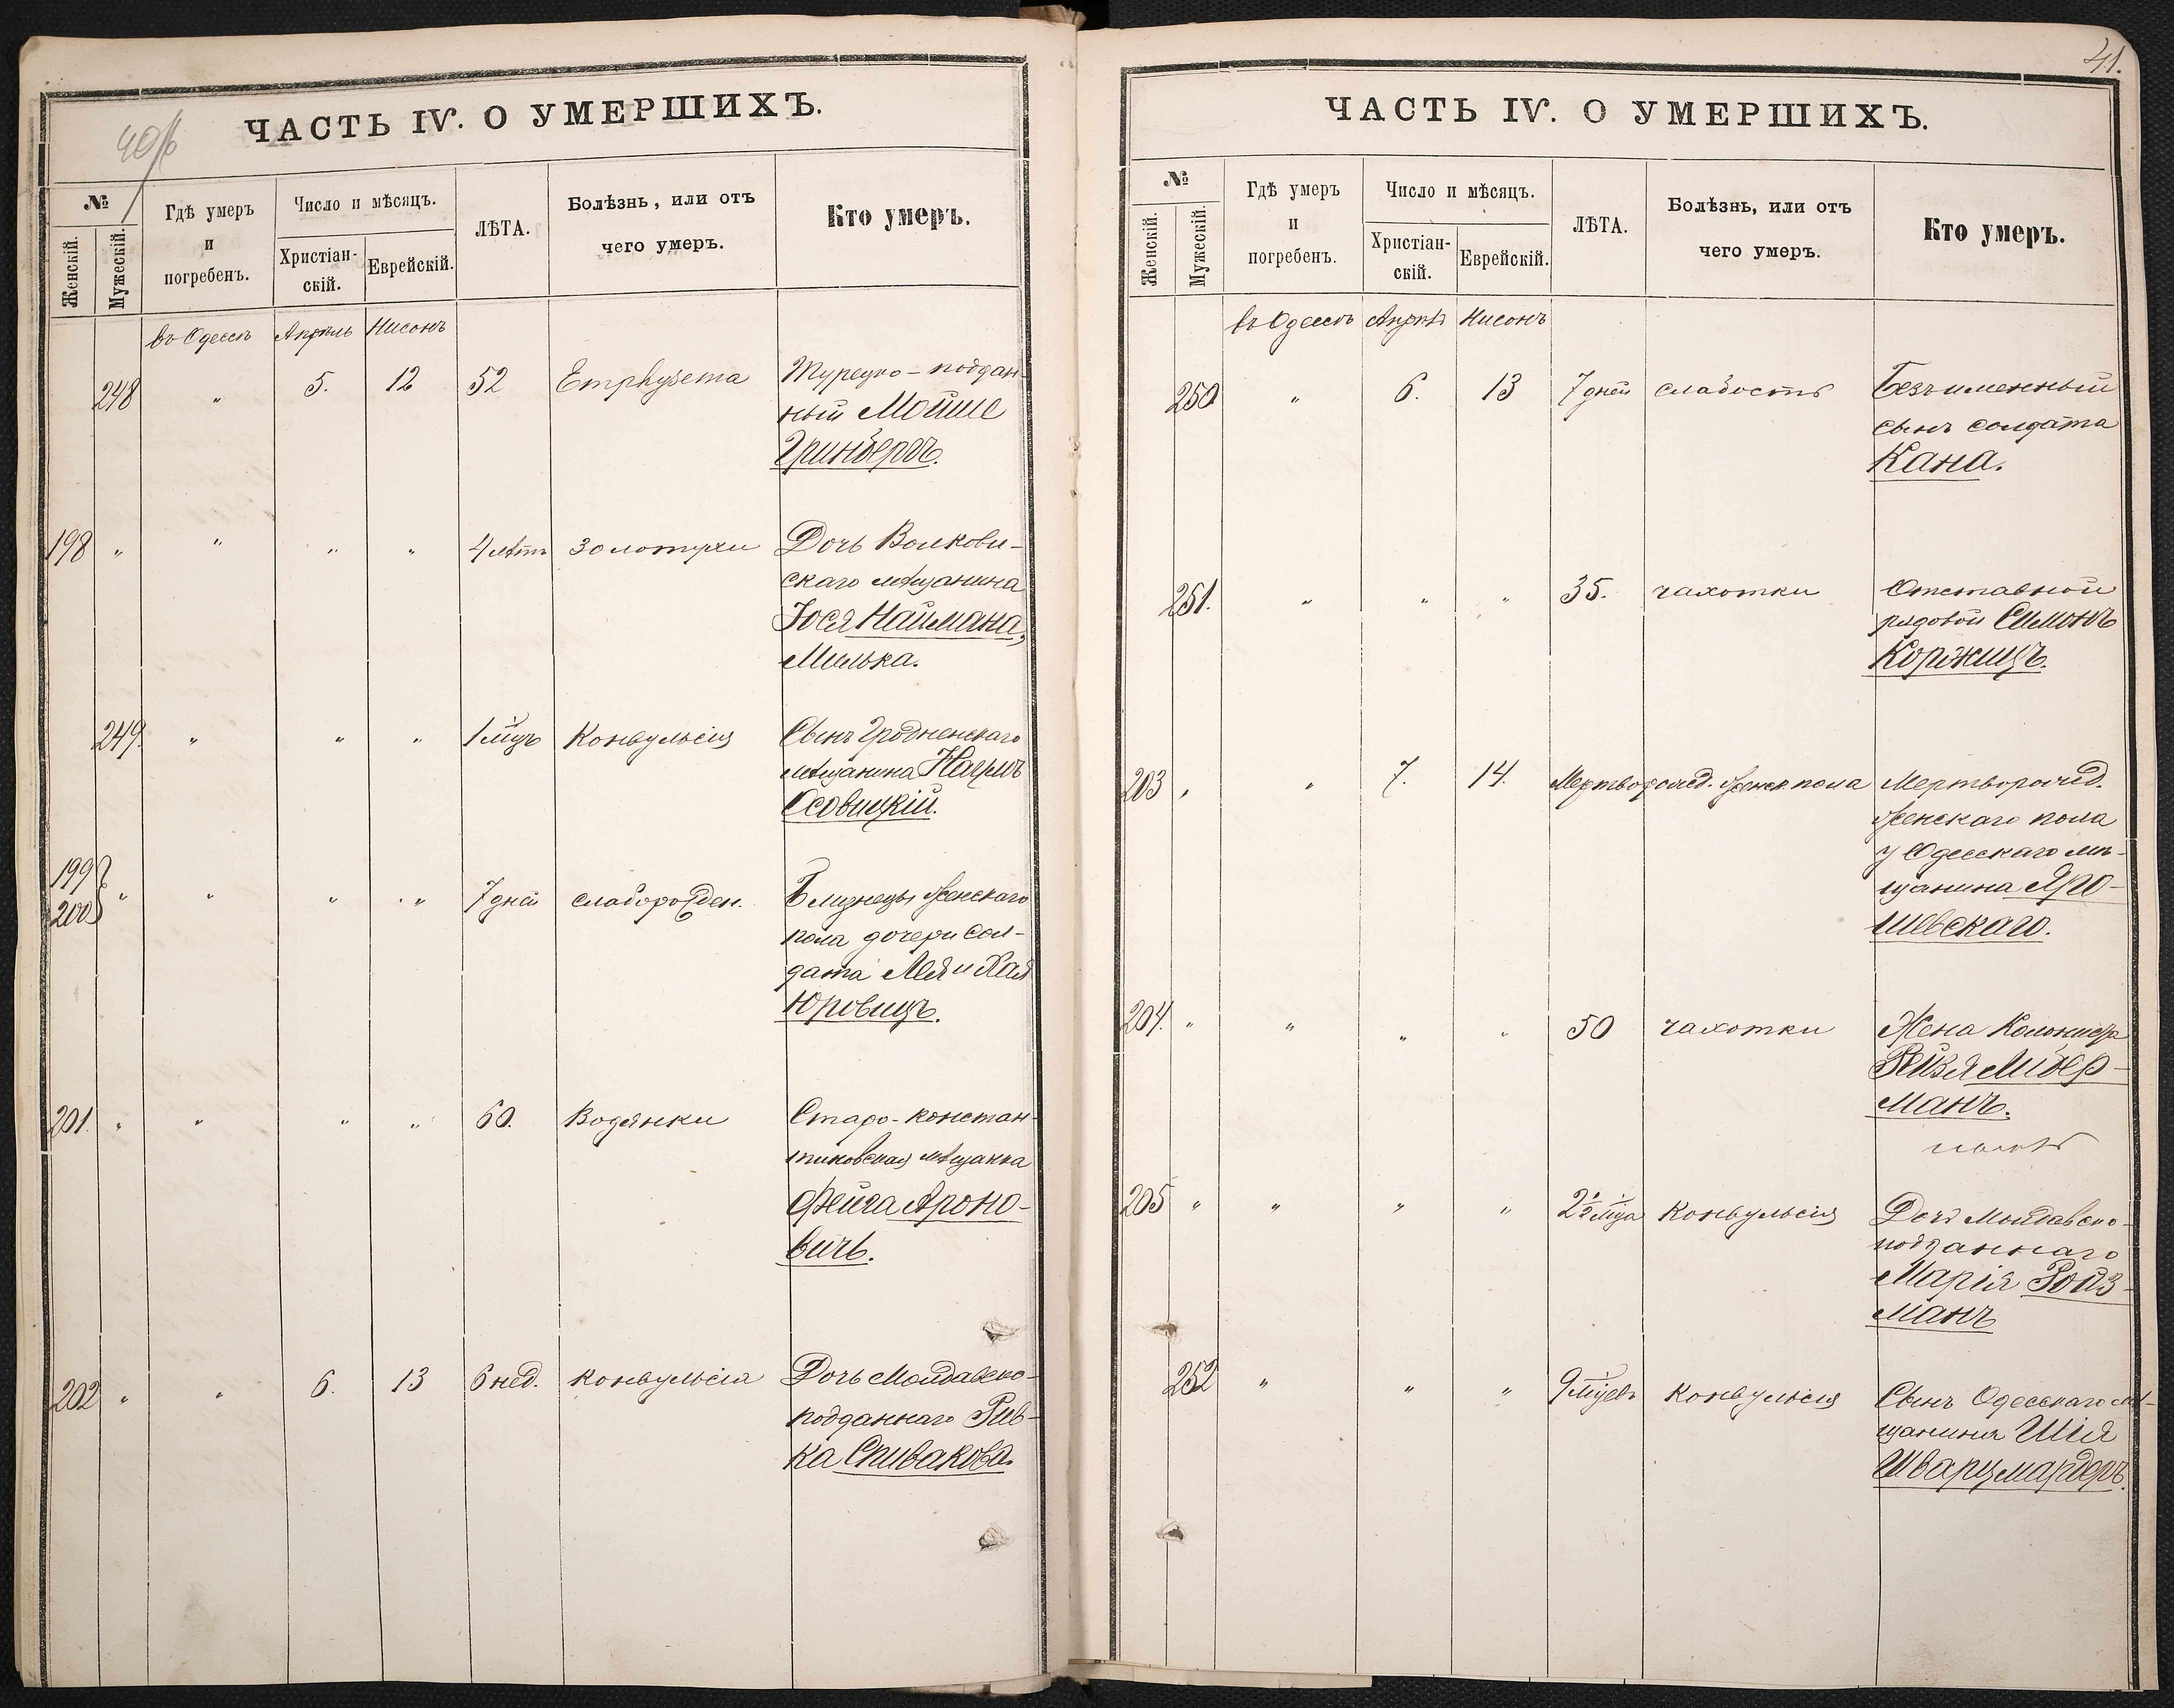 40/б
ЧАСТЬ IV. О УМЕРШИХЪ.
№
Женскій.
Мужескій.
Гдѣ умеръ
и
погребенъ.
Число и мѣсяцъ.
Христіан-
скій.
Еврейскій.
ЛѢТА.
Болѣзнь, или отъ
чего умеръ.
Кто умеръ.
въ Одессѣ Апрѣль Нисонъ
248 " 5. 12 52 Emphysema Турецко-поддан-
ный Мойше
Гринбергъ.
198 " " " " 4 лѣтъ Золотухи Дочь Волкови-
скаго мѣщанина
Іося Наймана,
Милька.
249. " " " 1 мцъ Конвульсія Сынъ Гродненскаго
мѣщанина Нахумъ
Осовицкій.
199
200 " " " " 7 дней слаборожден. Близнецы женскаго
пола дочери сол-
дата Лея и Хая
Юровицъ.
201. " " " " 60. Водянки Старо-констан-
тиновская мѣщанка
Фейга Ароно-
вичъ.
202 " " 6. 13 6 нед. конвульсія Дочь Молдавско-
подданнаго Рив-
ка Спивакова.
41.
ЧАСТЬ IV. О УМЕРШИХЪ.
№
Женскій.
Мужескій.
Гдѣ умеръ
и
погребенъ.
Число и мѣсяцъ.
Христіан-
скій.
Еврейскій.
ЛѢТА.
Болѣзнь, или отъ
чего умеръ.
Кто умеръ.
въ Одессѣ Апрѣль Нисонъ
250 " 6. 13 7 дней слабость Безъименный
сынъ солдата
Кана.
251. " " " 35. чахотки Отставной
рядовой Симонъ
Коржицъ.
203 " " 7. 14. Мертворожд. женск. пола Мертворожд.
женскаго пола
у Одесскаго мѣ-
щанина Яро-
шевскаго.
204. " " " " 50 чахотки Жена Колониста
Рейзя Либер-
манъ.
205 " " " " 2½ мца Конвульсія Дочь Молдавско-
подданнаго
Марія Ройз-
манъ
252 " " " 9 мцевъ Конвульсія Сынъ Одесскаго мѣ-
щанина Шія
Шварцмардеръ.